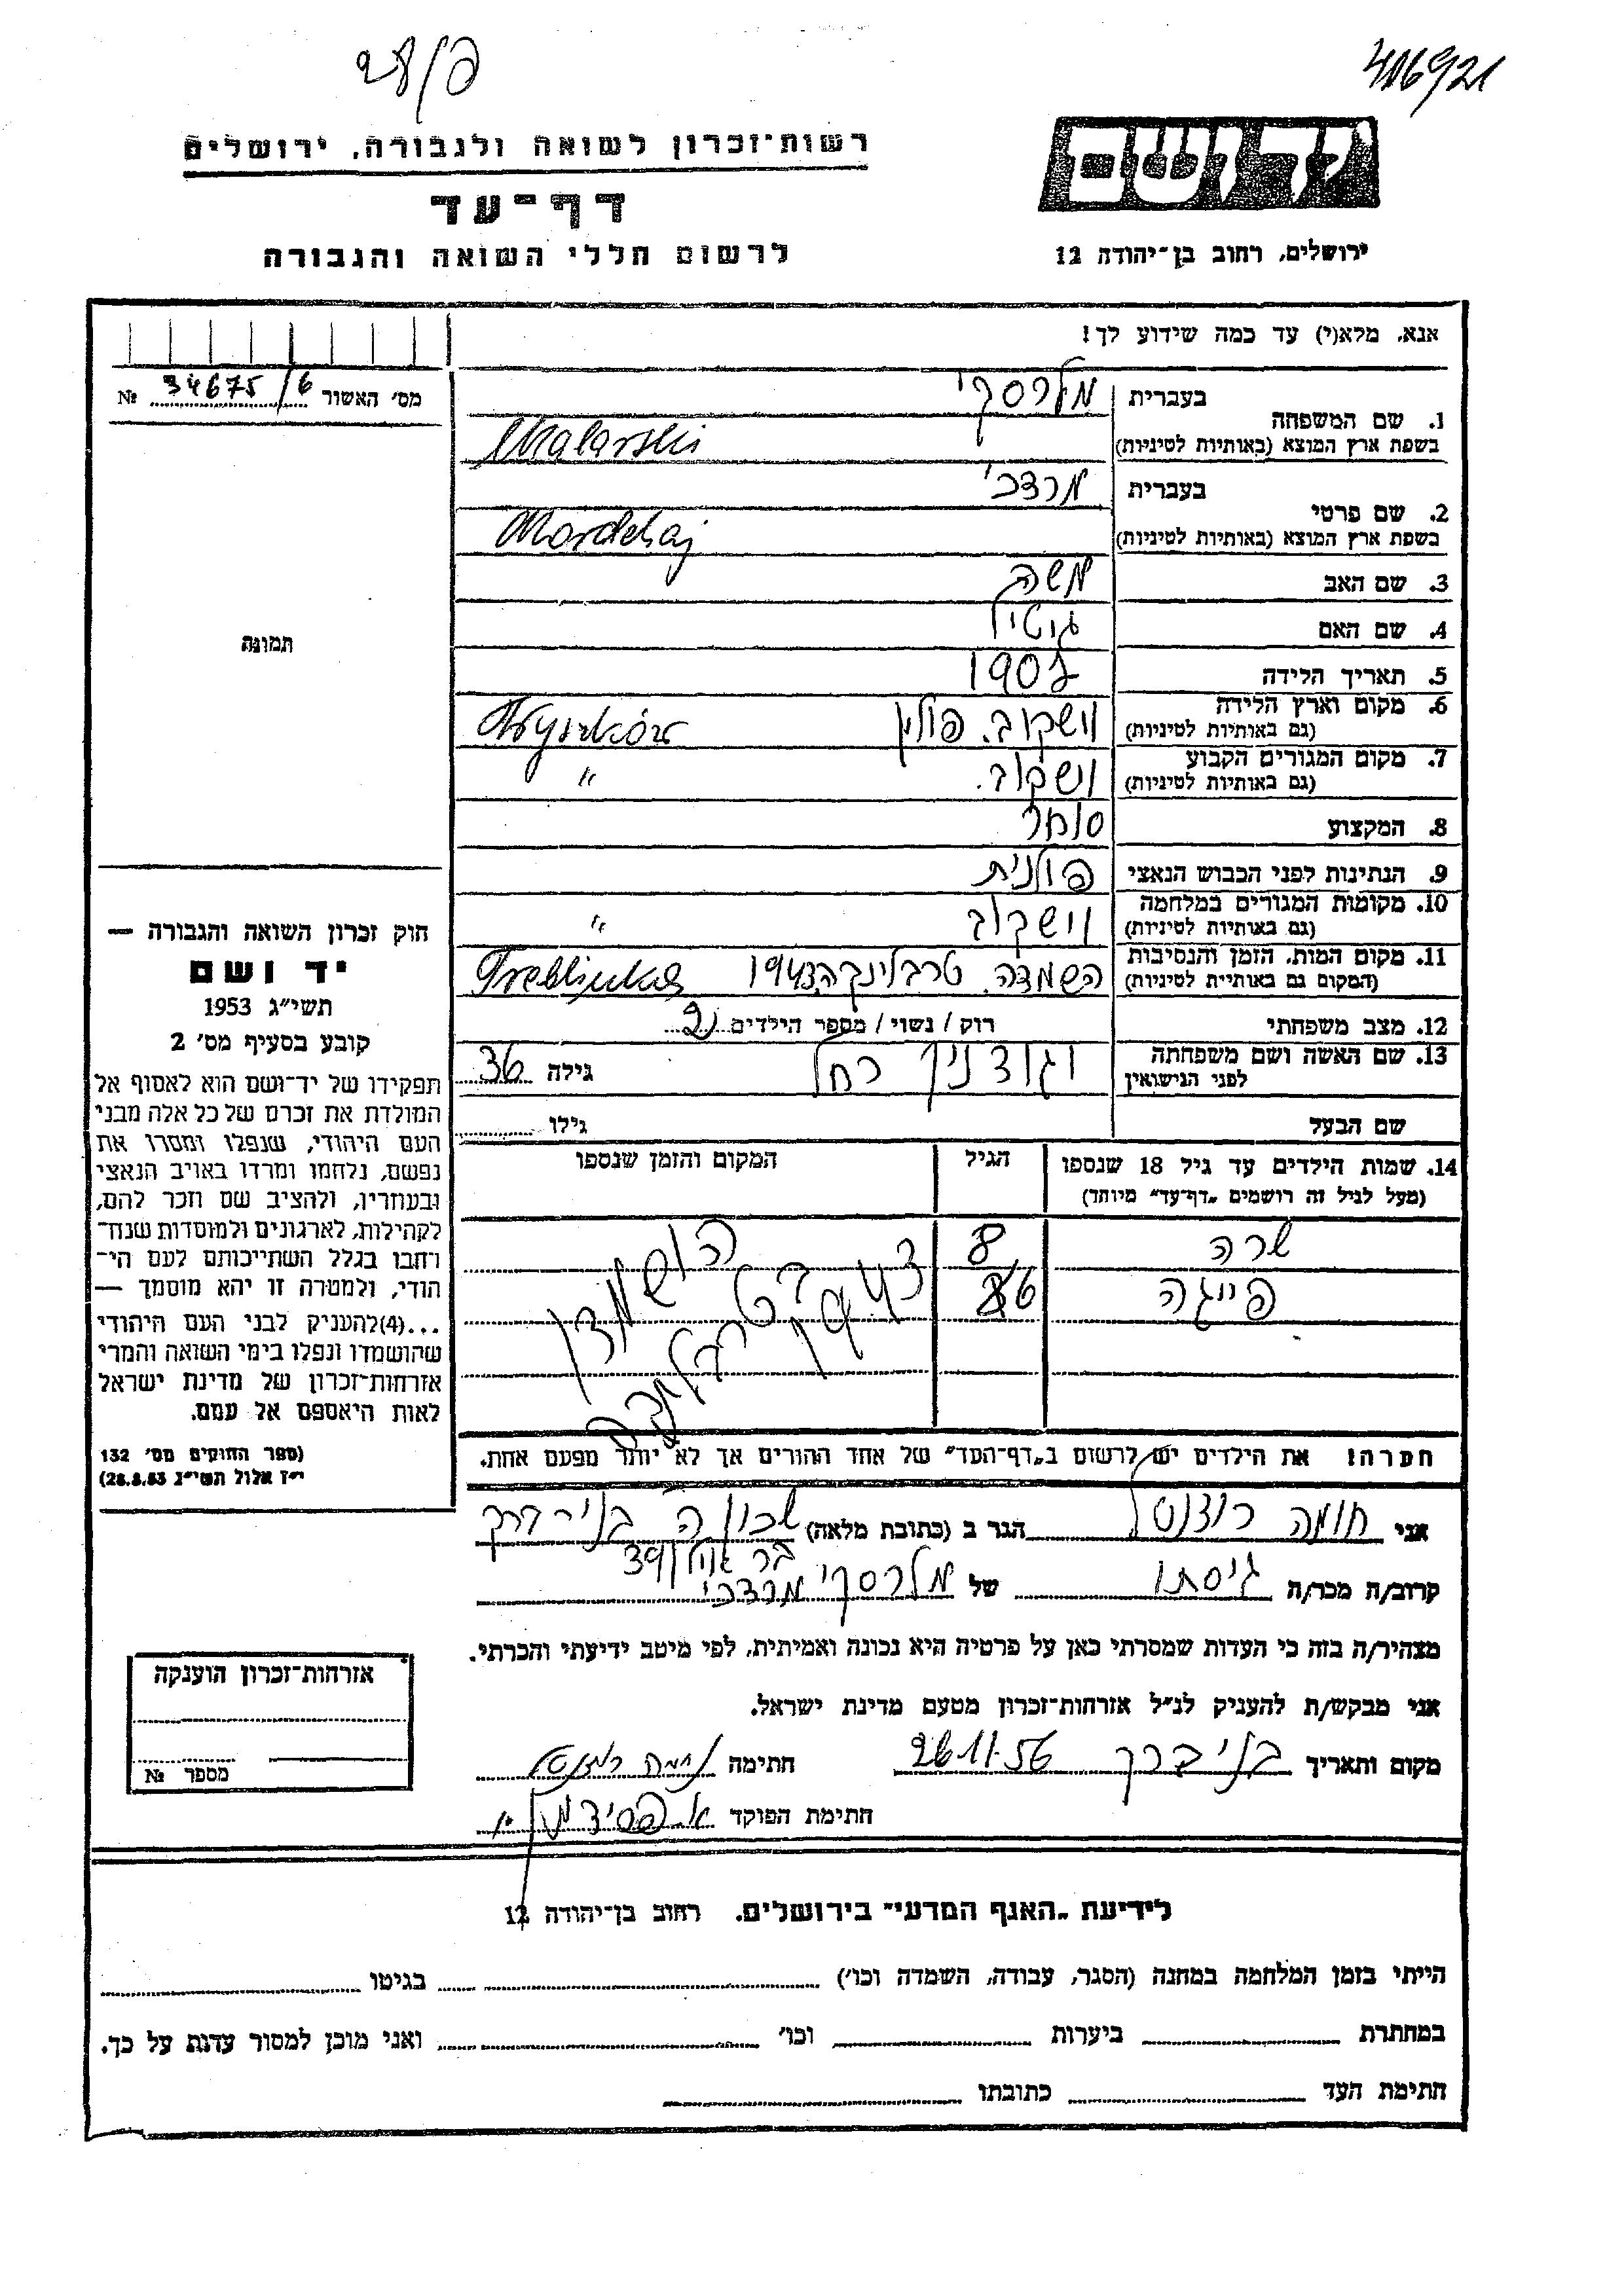 406921
28/פ
יד ושם
ירושלים, רחוב בן־יהודה 12
רשות־זכרון לשואה ולגבורה, ירושלים
דף־עד
לרשום חללי השואה והגבורה
אנא, מלא(י) עד כמה שידוע לך!
מס׳ האשור 34675/6 №
1. שם המשפחה
בעברית מלרסקי
בשפת ארץ המוצא (באותיות לטיניות) Malarski
2. שם פרטי
בעברית מרדכי
בשפת ארץ המוצא (באותיות לטיניות) Mordchaj
3. שם האב משה
4. שם האם גיטיל
5. תאריך הלידה 1907
6. מקום וארץ הלידה וישקוב. פולין Wyszków
(גם באותיות לטיניות)
7. מקום המגורים הקבוע וישקוב. "
(גם באותיות לטיניות)
8. המקצוע סוחר
9. הנתינות לפני הכבוש הנאצי פולנית
10. מקומות המגורים במלחמה וישקוב "
(גם באותיות לטיניות)
11. מקום המות, הזמן והנסיבות השמדה. טרבלינקה 1943 Treblinka
(המקום גם באותיות לטיניות)
12. מצב משפחתי רוק / נשוי / מספר הילדים 2
13. שם האשה ושם משפחתה רחל גילה 36
לפני הנישואין
שם הבעל גילו
14. שמות הילדים עד גיל 18 שנספו הגיל המקום והזמן שנספו
(מעל לגיל זה רושמים „דף־עד" מיוחד)
שרה 8
פייגה 6
הושמדו
תמונה
חוק זכרון השואה והגבורה —
יד ושם
תשי״ג 1953
קובע בסעיף מס׳ 2
תפקידו של יד־ושם הוא לאסוף אל
המולדת את זכרם של כל אלה מבני
העם היהודי, שנפלו ומסרו את
נפשם, נלחמו ומרדו באויב הנאצי
ובעוזריו, ולהציב שם וזכר להם,
לקהילות, לארגונים ולמוסדות שנח־
רחבו בגלל השתייכותם לעם הי־
הודי, ולמטרה זו יהא מוסמך —
...(4)להעניק לבני העם היהודי
שהושמדו ונפלו בימי השואה והמרי
אזרחות־זכרון של מדינת ישראל
לאות היאספם אל עמם.
(ספר החוקים מס׳ 132
י״ז אלול תשי״ג 28.8.53)
הערה! את הילדים יש לרשום ב„דף־העד" של אחד ההורים אך לא יותר מפעם אחת.
אני נחמה רוזנטל הגר ב (כתובת מלאה) שכונה בני ברק
בר אילן 39
קרוב/ה מכר/ה גיסתו של מלרסקי מרדכי
מצהיר/ה בזה כי העדות שמסרתי כאן על פרטיה היא נכונה ואמיתית, לפי מיטב ידיעתי והכרתי.
אני מבקש/ת להעניק לנ״ל אזרחות־זכרון מטעם מדינת ישראל.
מקום ותאריך בני ברק 26.11.56 חתימה נחמה רוזנטל
חתימת הפוקד
אזרחות־זכרון הוענקה
מספר №
לידיעת „האגף המדעי" בירושלים. רחוב בן־יהודה 12
הייתי בזמן המלחמה במחנה (הסגר, עבודה, השמדה וכו׳) בגיטו
במחתרת ביערות וכו׳ ואני מוכן למסור עדות על כך.
חתימת העד כתובתו